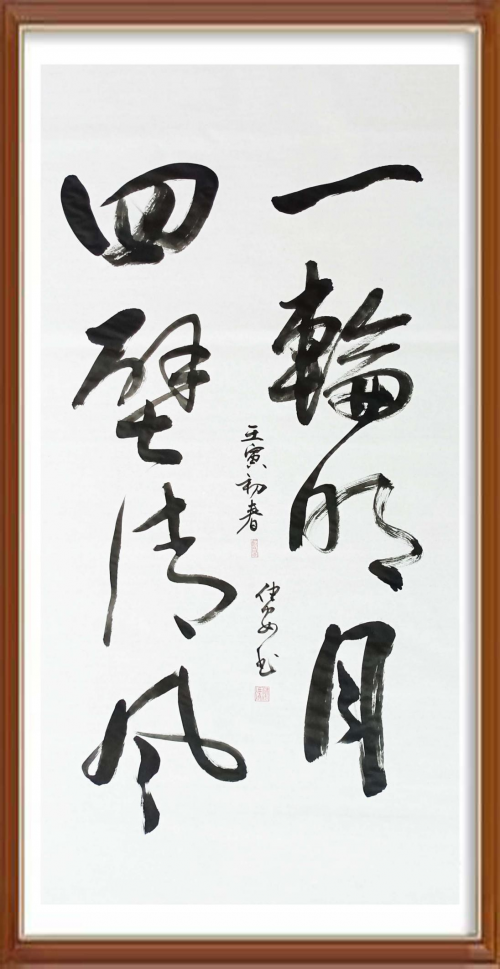 一輪明月
四壁清風
壬寅初春